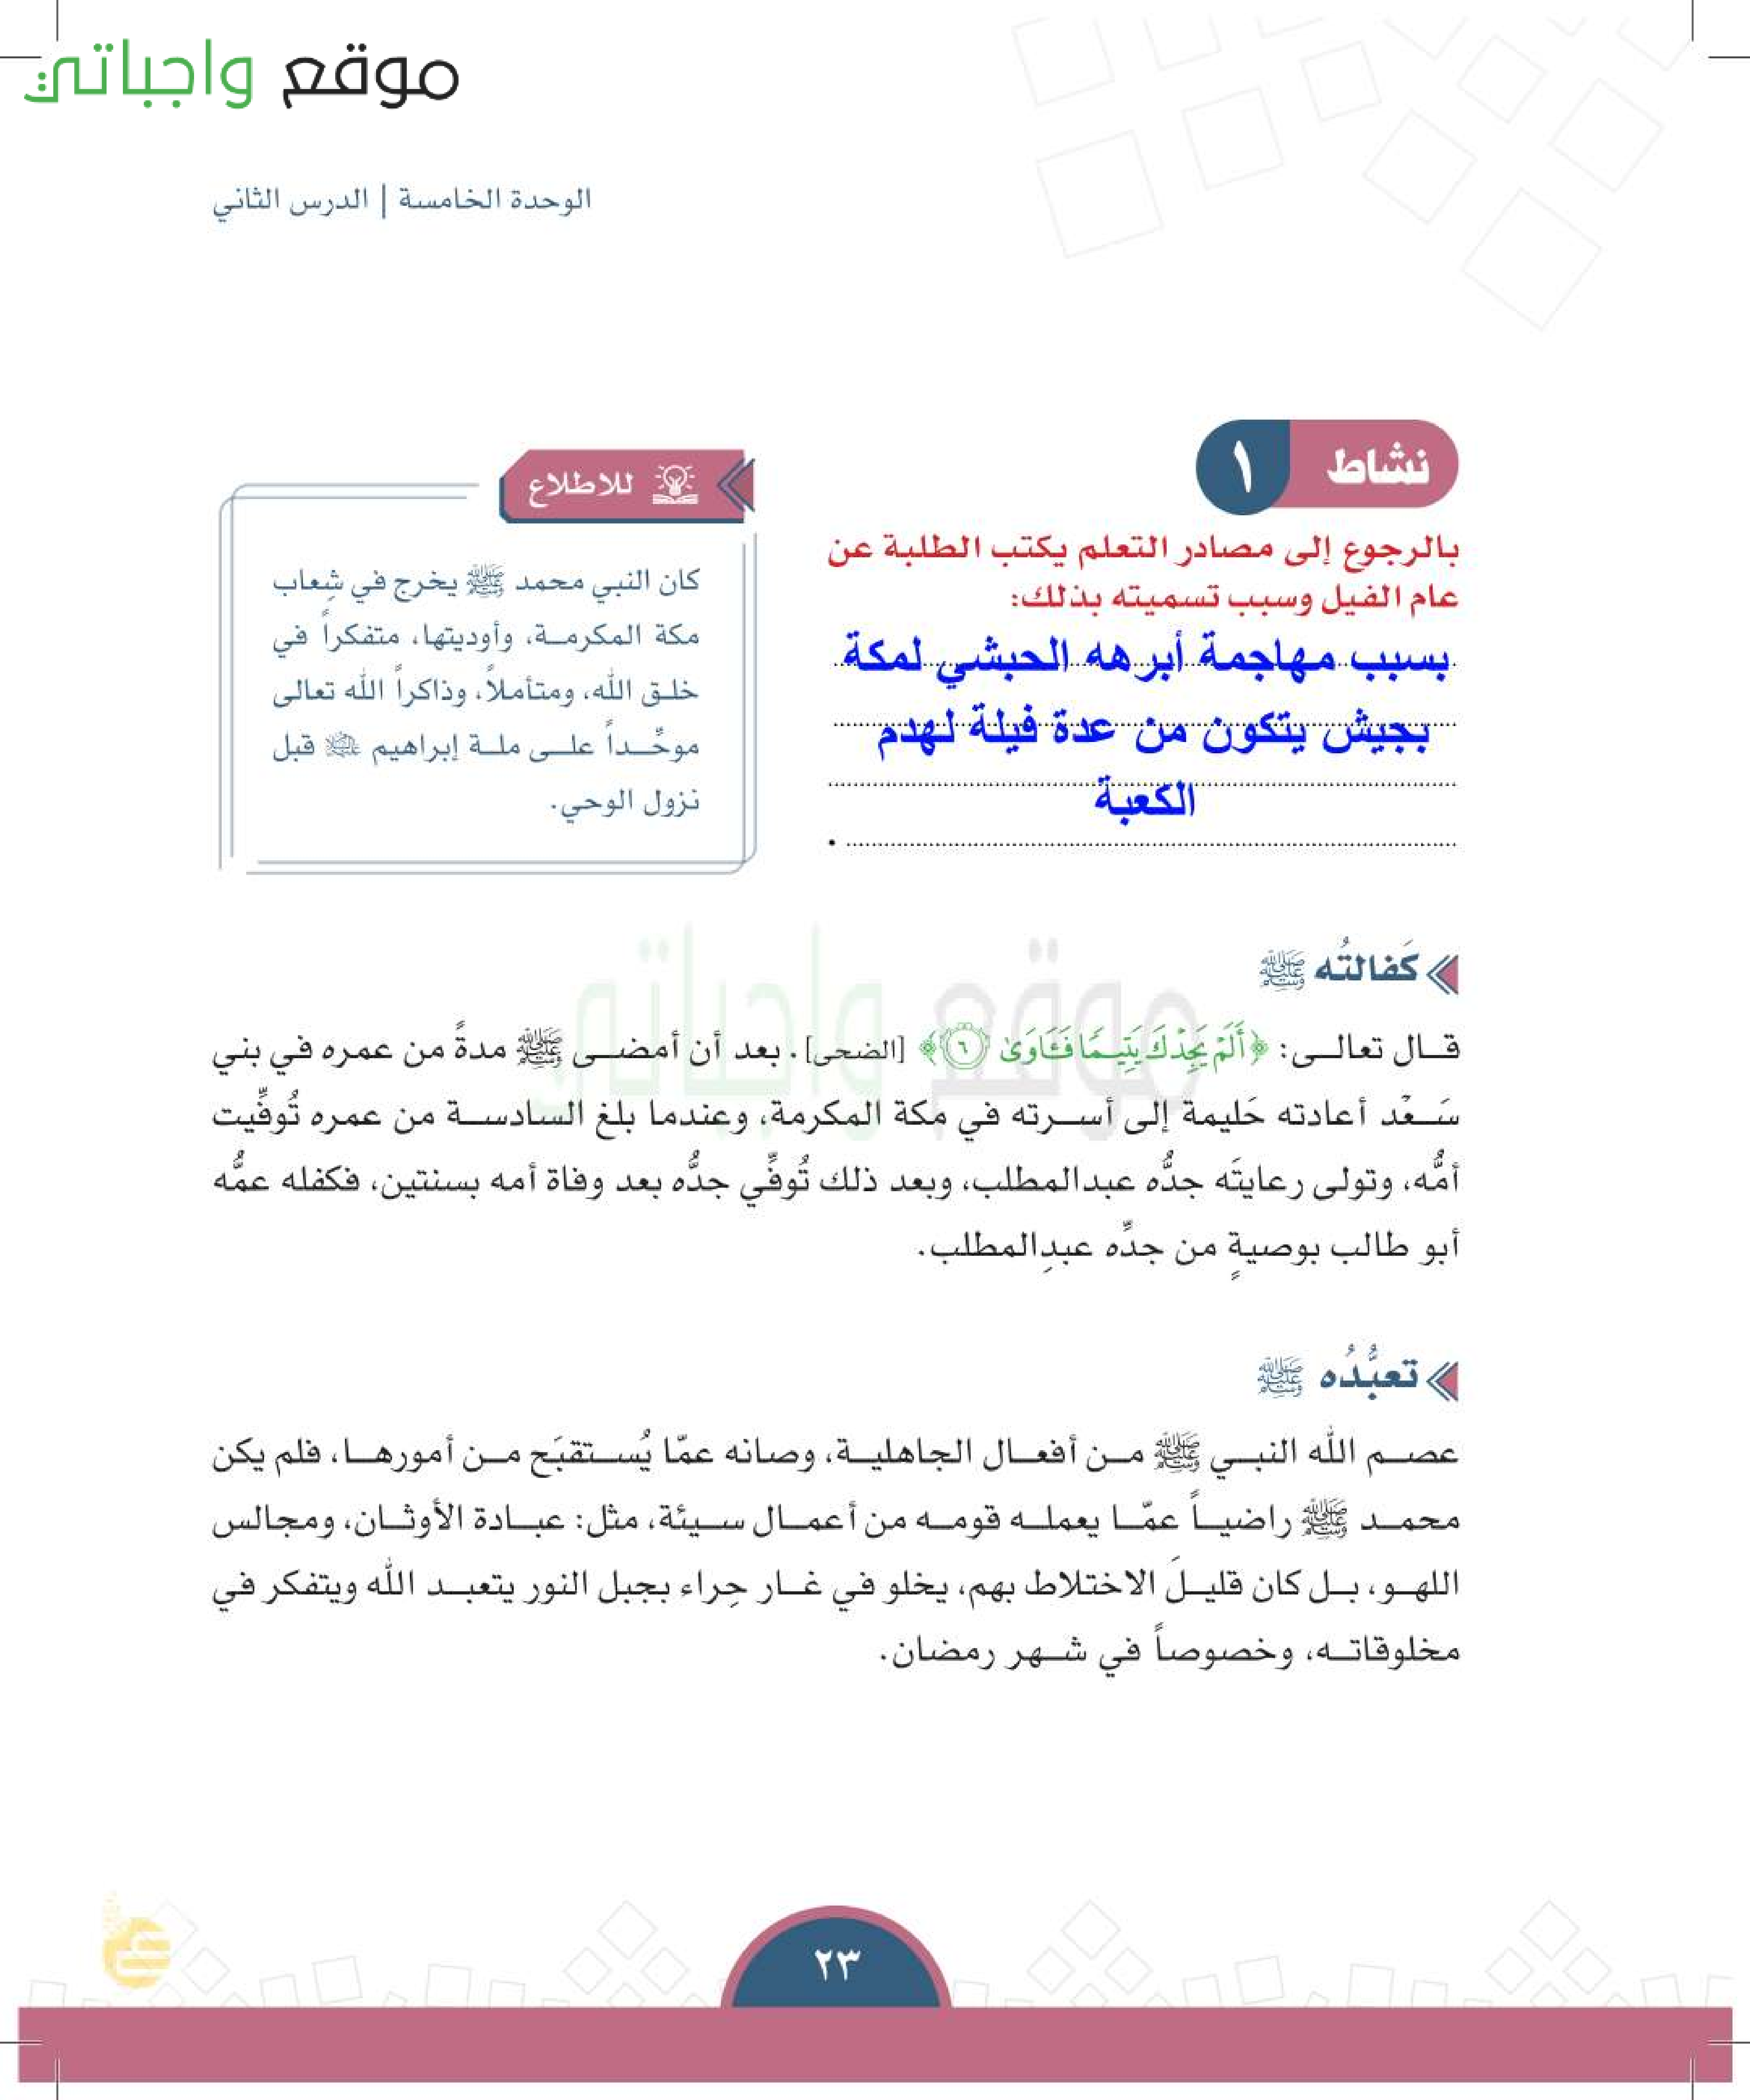 موقع واجباتي
الوحدة الخامسة | الدرس الثاني
نشاط ١
بالرجوع إلى مصادر التعلم يكتب الطلبة عن
عام الفيل وسبب تسميته بذلك:
بسبب مهاجمة أبرهه الحبشي لمكة
بجيش يتكون من عدة فيلة لهدم
الكعبة
للاطلاع
كان النبي محمد ﷺ يخرج في شِعاب
مكة المكرمـة، وأوديتها، متفكراً في
خلـق الله، ومتأملاً، وذاكراً الله تعالى
موحِّـداً علـى ملـة إبراهيم عليه السلام قبل
نزول الوحي.
كَفالتُه ﷺ
قـال تعالـى: ﴿أَلَمْ يَجِدْكَ يَتِيمًا فَـَٔاوَىٰ ٦﴾ [الضحى]. بعد أن أمضـى ﷺ مدةً من عمره في بني
سَـعْد أعادته حَليمة إلى أسـرته في مكة المكرمة، وعندما بلغ السادسـة من عمره تُوفِّيت
أمُّه، وتولى رعايتَه جدُّه عبدالمطلب، وبعد ذلك تُوفِّي جدُّه بعد وفاة أمه بسنتين، فكفله عمُّه
أبو طالب بوصيةٍ من جدِّه عبدِالمطلب.
تعبُّدُه ﷺ
عصـم الله النبـي ﷺ مـن أفعـال الجاهليـة، وصانه عمّا يُسـتقبَح مـن أمورهـا، فلم يكن
محمـد ﷺ راضيـاً عمّـا يعملـه قومـه من أعمـال سـيئة، مثل: عبـادة الأوثـان، ومجالس
اللهـو، بـل كان قليـلَ الاختلاط بهم، يخلو في غـار حِراء بجبل النور يتعبـد الله ويتفكر في
مخلوقاتـه، وخصوصاً في شـهر رمضان.
موقع واجباتي
٢٣